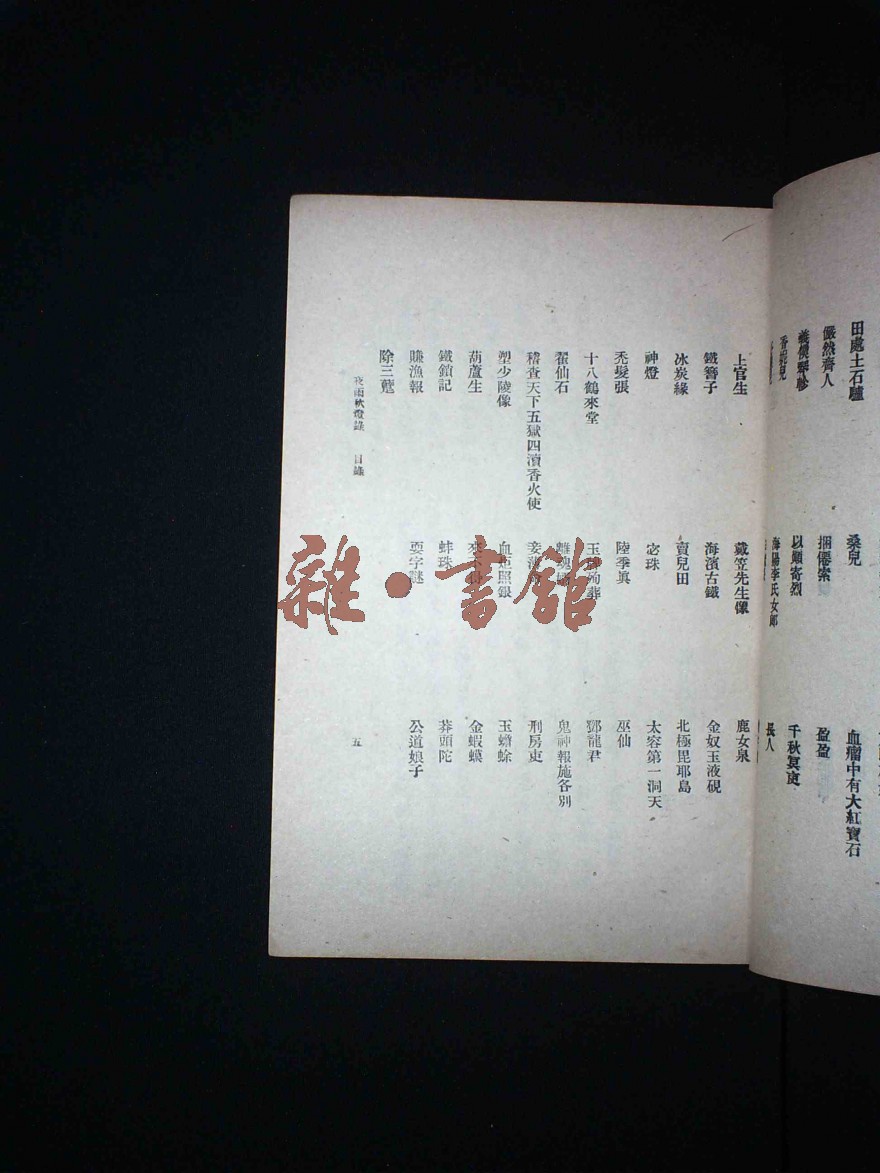 田處士石驢　桑兒　血瘤中有大紅寶石
儼然齊人　捆僊索　盈盈
以顛寄烈　千秋冥吏
香妮兒　海陽李氏女郎　長人
上官生　戴笠先生像　鹿女泉
鐵簪子　海濱古鐵　金奴玉液硯
冰炭緣　賣兒田　北極毘耶島
神燈　宓珠　太容第一洞天
禿髮張　陸季真　巫仙
十八鶴來堂　玉牌殉葬　鄧龍君
仙石　鬼神報施各別
稽查天下五獄四瀆香火使　刑房吏
塑少陵像　血炬照銀　玉蟾蜍
葫蘆生　金蝦蟆
鐵鎖記　蚌珠　莽頭陀
賺漁報　耍字謎　公道娘子
除三孽
夜雨秋燈錄　目錄　五
雜·書館